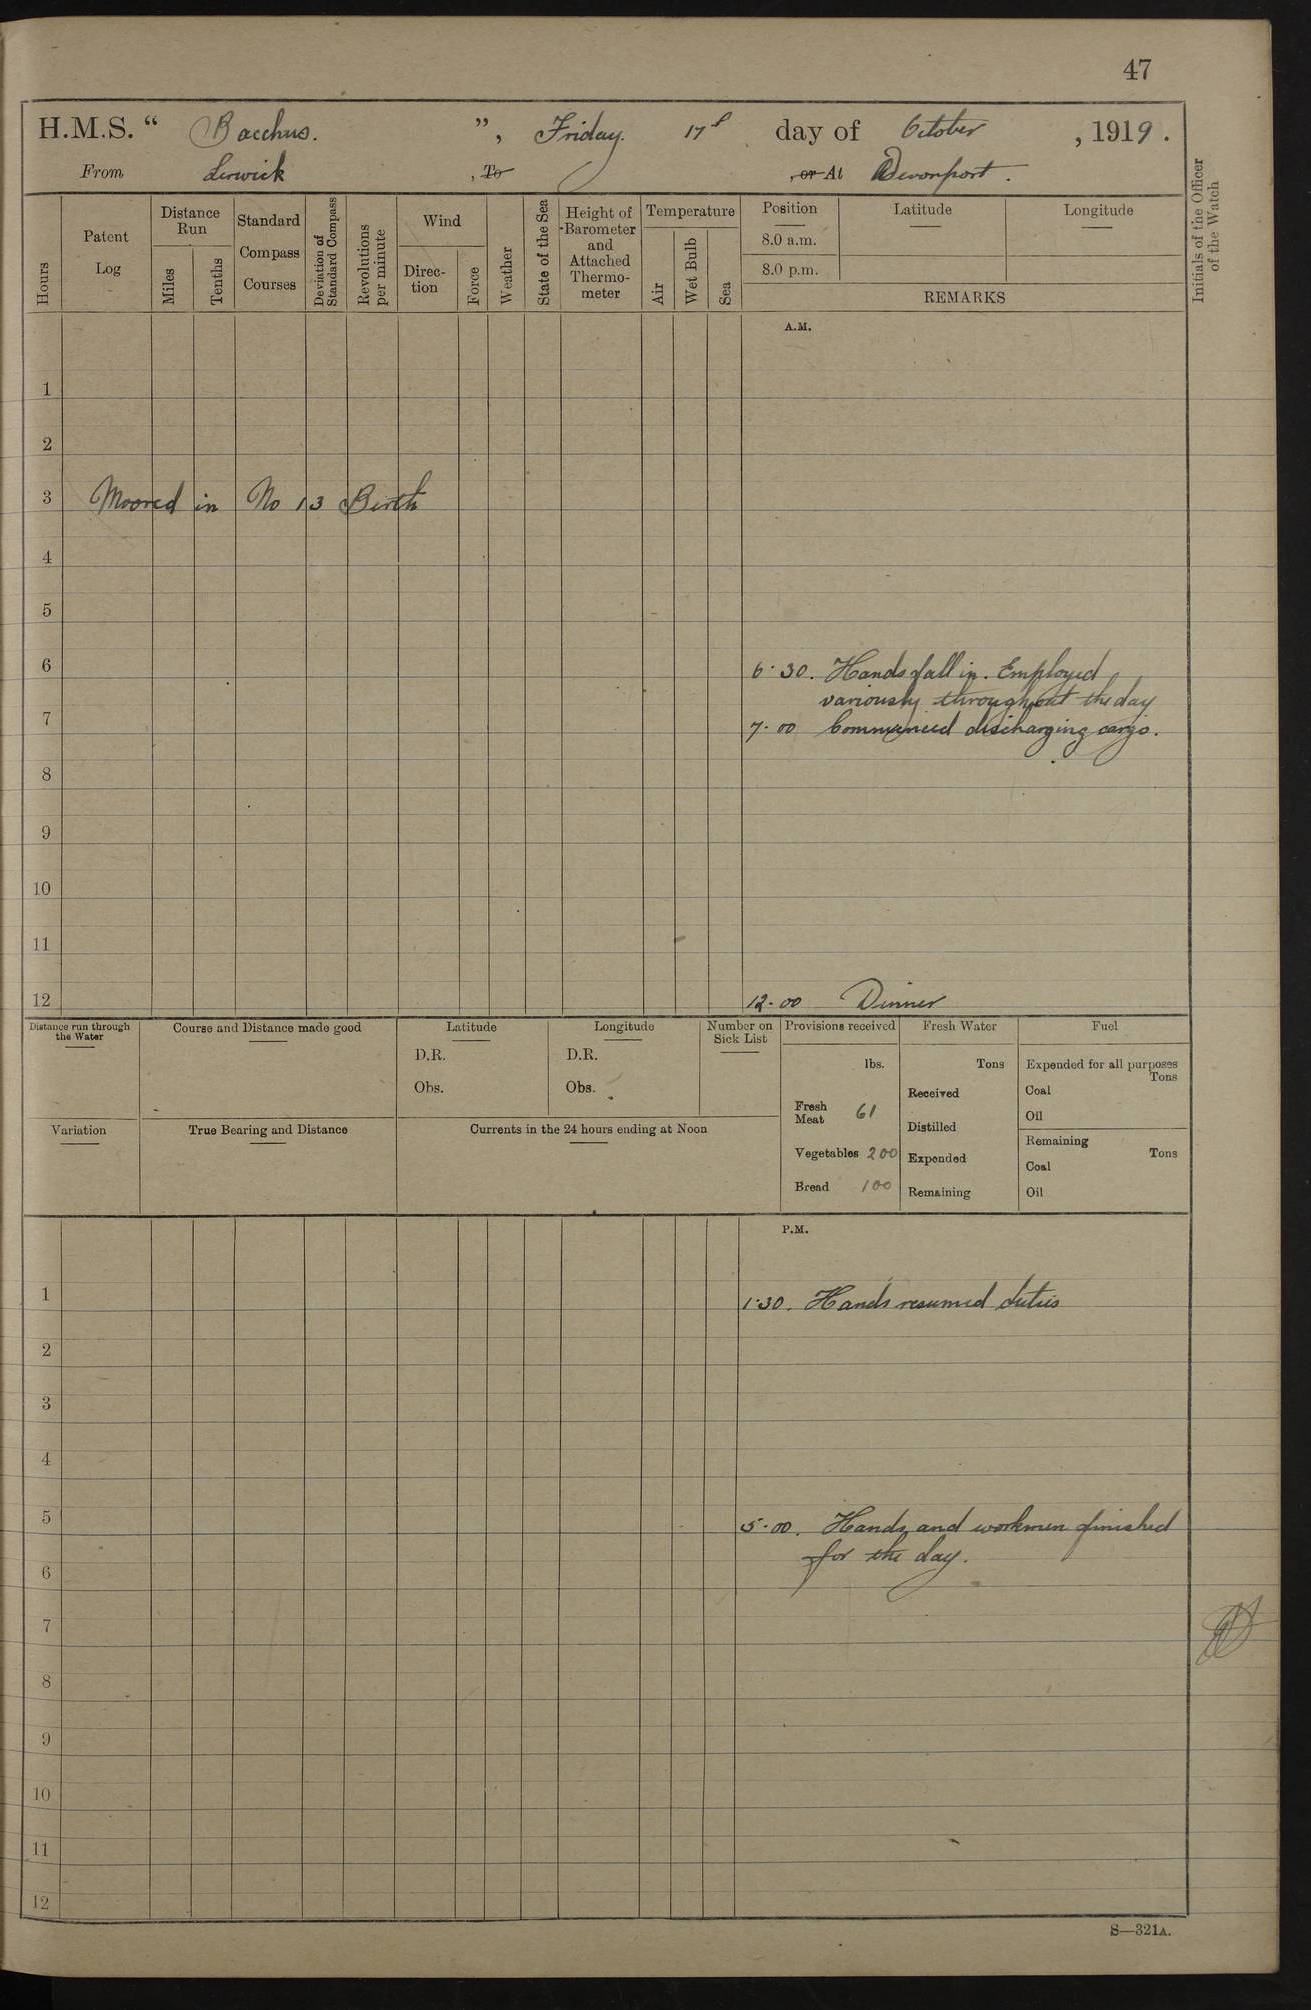 47
H.M.S. “ Bacchus. ”, Friday 17th day of October, 1919.
From Lerwick, To, or At Devonport.
Hours
Patent Log
Distance Run
Miles
Tenths
Standard Compass Courses
Deviation of Standard Compass
Revolutions per minute
Wind
Direction
Force
Weather
State of the Sea
Height of Barometer and Attached Thermometer
Temperature
Air
Wet Bulb
Sea
Position
8.0 a.m.
8.0 p.m.
Latitude
Longitude
REMARKS
Initials of the Officer of the Watch
A.M.
1
2
3 Moored in No 13 Berth
4
5
6
6.30. Hands fall in. Employed
variously throughout the day
7
7.00 Commenced discharging cargo.
8
9
10
11
12
12.00 Dinner
Distance run through the Water
Course and Distance made good
Latitude
D.R.
Obs.
Longitude
D.R.
Obs.
Number on Sick List
Provisions received
lbs.
Fresh Meat 61
Vegetables 200
Bread 100
Fresh Water
Tons
Received
Distilled
Expended
Remaining
Fuel
Expended for all purposes
Tons
Coal
Oil
Remaining
Tons
Coal
Oil
Variation
True Bearing and Distance
Currents in the 24 hours ending at Noon
P.M.
1
1.30. Hands resumed duties
2
3
4
5
5.00. Hands and workmen finished
for the day.
6
7
8
9
10
11
12
S—321A.